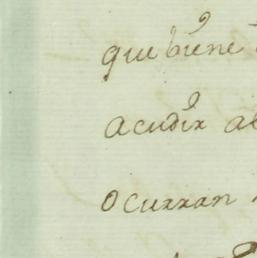 que biene
acudir al
ocurran